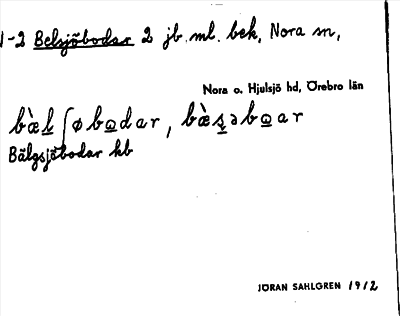 1-2 Belsjöbodar 2 jb. ml. bek, Nora sn,
Nora o. Hjulsjö hd, Örebro län
bæ̀l̲ʃøbo̲dar, bæ̀s̲əbo̲ar
Bälgsjöbodar hb
JÖRAN SAHLGREN 1912